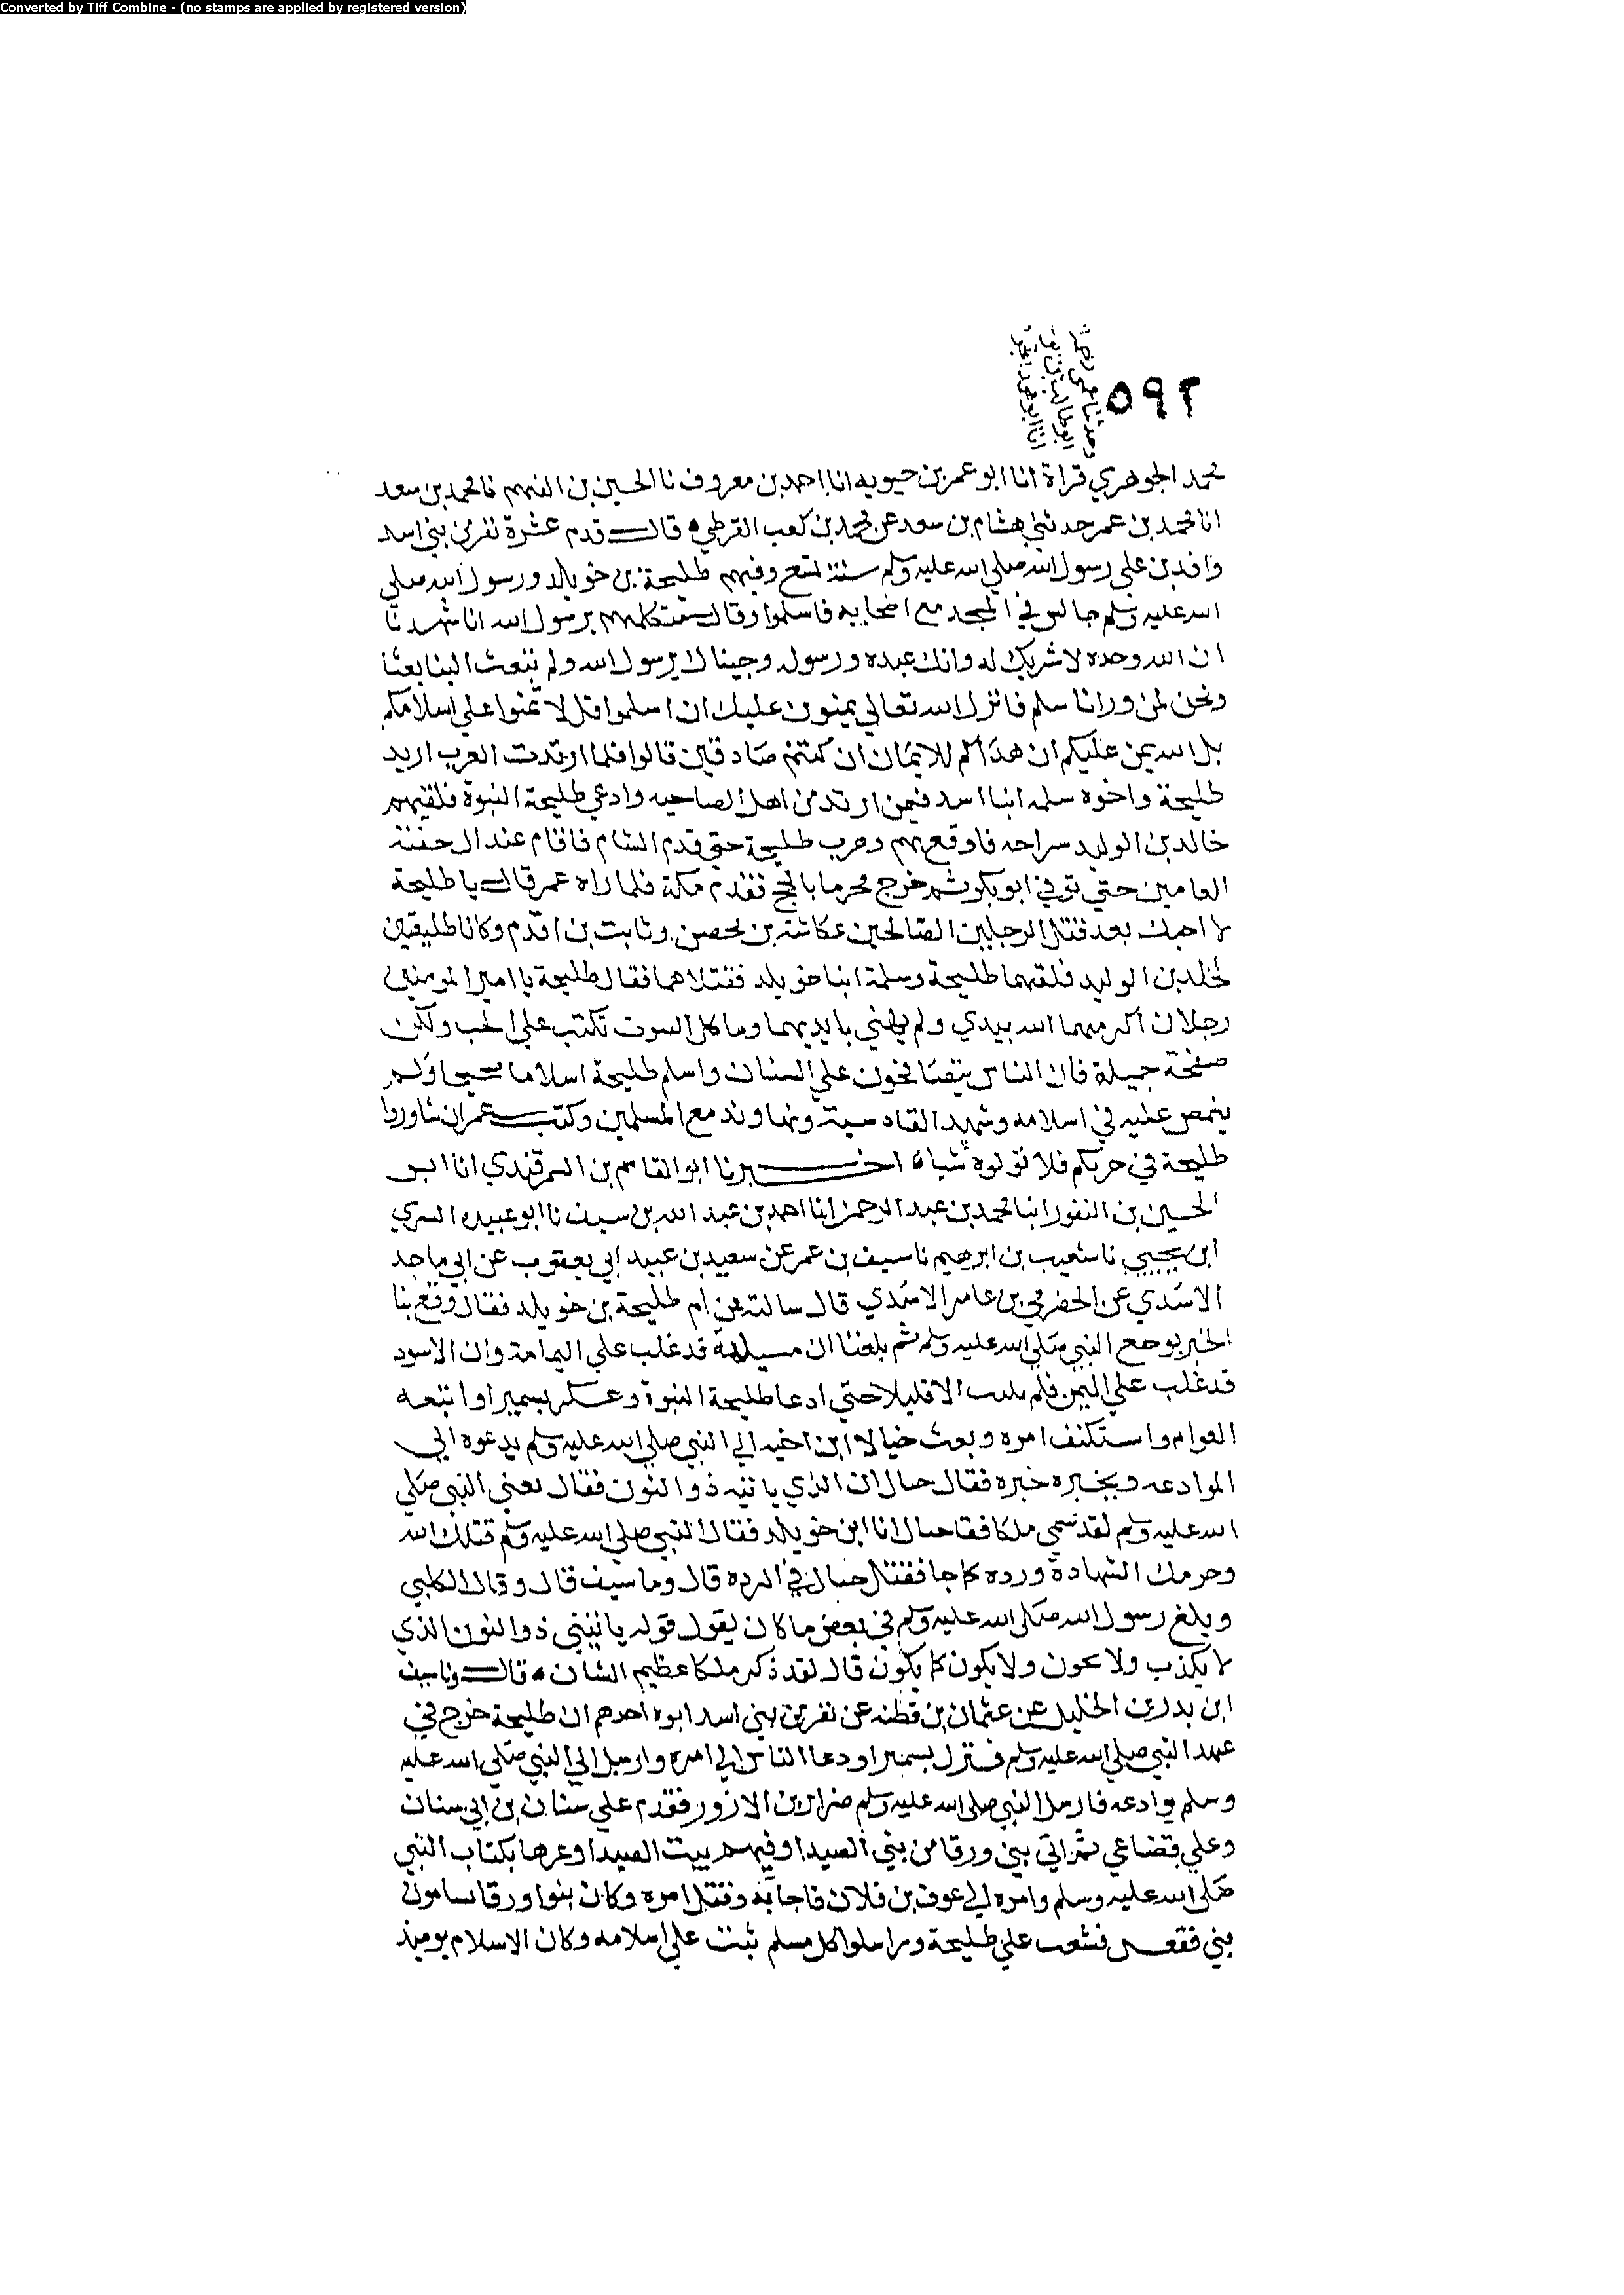 Converted by Tiff Combine - (no stamps are applied by registered version)
٥٩٢
محمد الجوهري قراة انا ابو عمر بن حيويه انا احمد بن معروف نا الحسين بن الفهم نا محمد بن سعد
انا محمد بن عمر حدثني هشام بن سعد عن محمد بن كعب القرظي قال قدم عشرة نفر من بني اسد
وافدين على رسول الله صلى الله عليه وسلم سنة تسع وفيهم طليحة بن خويلد ورسول الله صلي
الله عليه وسلم جالس في المسجد مع اصحابه فاسلموا وقال متكلمهم يرسول الله انا شهدنا
ان الله وحده لا شريك له وانك عبده ورسوله وجيناك يرسول الله ولم تبعث الينا بعثا
ونحن لمن ورانا سلم فانزل الله تعالي يمنون عليك ان اسلموا قل لا تمنوا علي اسلامكم
بل الله يمن عليكم ان هداكم للايمان ان كنتم صادقين قالوا فلما ارتدت العرب اريد
طليحة واخوه سلمه ابنا اسد فيمن ارتد من اهل الصاحيه وادعي طليحة النبوة فلقيهم
خالد بن الوليد سراحه فاوقع بهم وهرب طليحة حتي قدم الشام فاقام عند ال جفنة
العامين حتي توفي ابو بكر ثم خرج محرما بالحج فقدم مكة فلما راه عمر قال يا طليحة
لا احبك بعد قتل الرجلين الصالحين عكاشة بن محصن وثابت بن اقدم وكانا طليقين
لخلد بن الوليد فلقهما طليحة وسلمة ابنا خويلد فقتلاهما فقال طليحة يا امير المومنين
رجلان اكرمهما الله بيدي ولم يهني بايديهما وما كل السوت تكتب علي الحب ولكن
صفحة جميلة فان الناس يتصافحون علي السنان واسلم طليحة اسلاما صحيحا ولم
يغمص عليه في اسلامه وشهد القادسية ونهاوند مع المسلمين وكتب عمر ان شاوروا
طليحة في حربكم فلا تولوه شيا اخبرنا ابو القاسم بن السمرقندي انا ابو
الحسين بن النقور انبا محمد بن عبد الرحمن انا احمد بن عبد الله بن سيف نا ابو عبيده السري
ابن يحيي نا شعيب بن ابرهيم نا سيف بن عمر عن سعيد بن عبيد ابي يعقوب عن ابي ماجد
الاسدي عن الحضرمي بن عامر الاسدي قال سالته عن ام طليحة بن خويلد فقال وقع بنا
الخبر بوجع النبي صلي الله عليه وسلم ثم بلغنا ان مسيلمة قد غلب علي اليمامة وان الاسود
قد غلب علي اليمن فلم يلبث الا قليلا حتي ادعا طليحة النبوة وعسكر بسميرا واتبعه
العوام واستكنف امره وبعث حبالا ابن اخيه الي النبي صلي الله عليه وسلم يدعوه الي
الموادعه ويخبره خبره فقال حبال ان الذي ياتيه ذو النون فقال يعني النبي صلي
الله عليه وسلم لقد سمي ملكا فقا حبال انا ابن خويلد فقال النبي صلي الله عليه وسلم قتلك الله
وحرمك الشهادة ورده كما جا فقتل حبال في الرده قال وما سيف قال وقال الكلبي
وبلغ رسول الله صلي الله عليه وسلم في بعض ما كان يقول قوله ياتيني ذو النون الذي
لا يكذب ولا يخون ولا يكون كما يكون قال لقد ذكر ملكا عظيم الشان قال ونا سيف
ابن بدر بن الخليل عن عثمان بن قطنه عن نفر من بني اسد ابوه احدهم ان طليحة خرج في
عهد النبي صلي الله عليه وسلم فنزل بسميرا ودعا الناس الي امره وارسل الي النبي صلي الله عليه
وسلم يوادعه فارسل النبي صلي الله عليه وسلم ضرار بن الازور فقدم علي سنان بن ابي سنان
وعلي قضاعي ثم اتي بني ورقا من بني الصيدا وفيهم بيت الصيدا وغيرها بكتاب النبي
صلي الله عليه وسلم وامره الي عوف بن فلان فاجابه وقبل امره وكان بنوا ورقا يسامون
بني فقعس فشعب علي طليحة وراسلوا كل مسلم ثبت علي اسلامه وكان الاسلام يوميذ